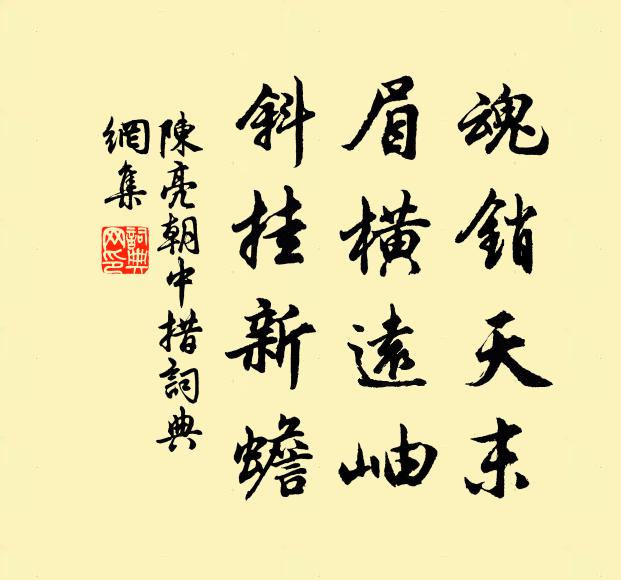 魂銷天末
眉橫遠岫
斜挂新蟾
陳亮朝中措詞典
網集
詞典
网印